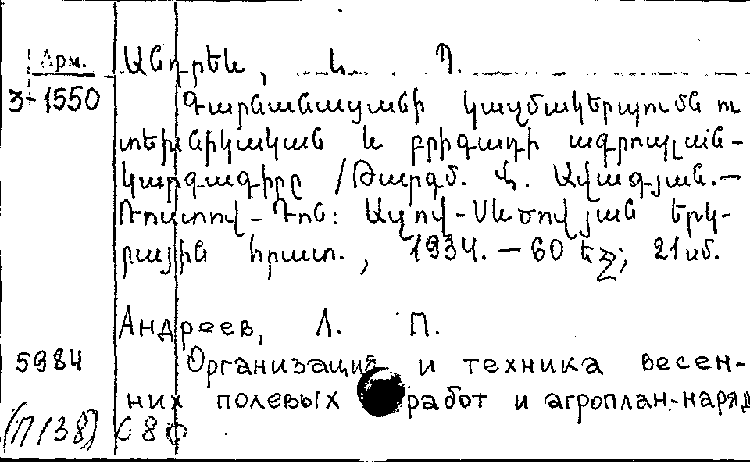 Арм. Անդրեև, Լ. Պ.
3-1550 Գարնանացանի կազմակերպումն ու
տեխնիկական և բրիգադի ագրոպլան-
կարգագիրը /Թարգմ. Հ. Ավագյան.—
Ռոստով-Դոն: Ազով-Սևծովյան երկ-
րային հրատ., 1934. — 60 եջ; 21 սմ.
Андреев, Л. П.
5984 Организация и техника весен-
них полевых работ и агроплан-наряд
(П138) С8Ф